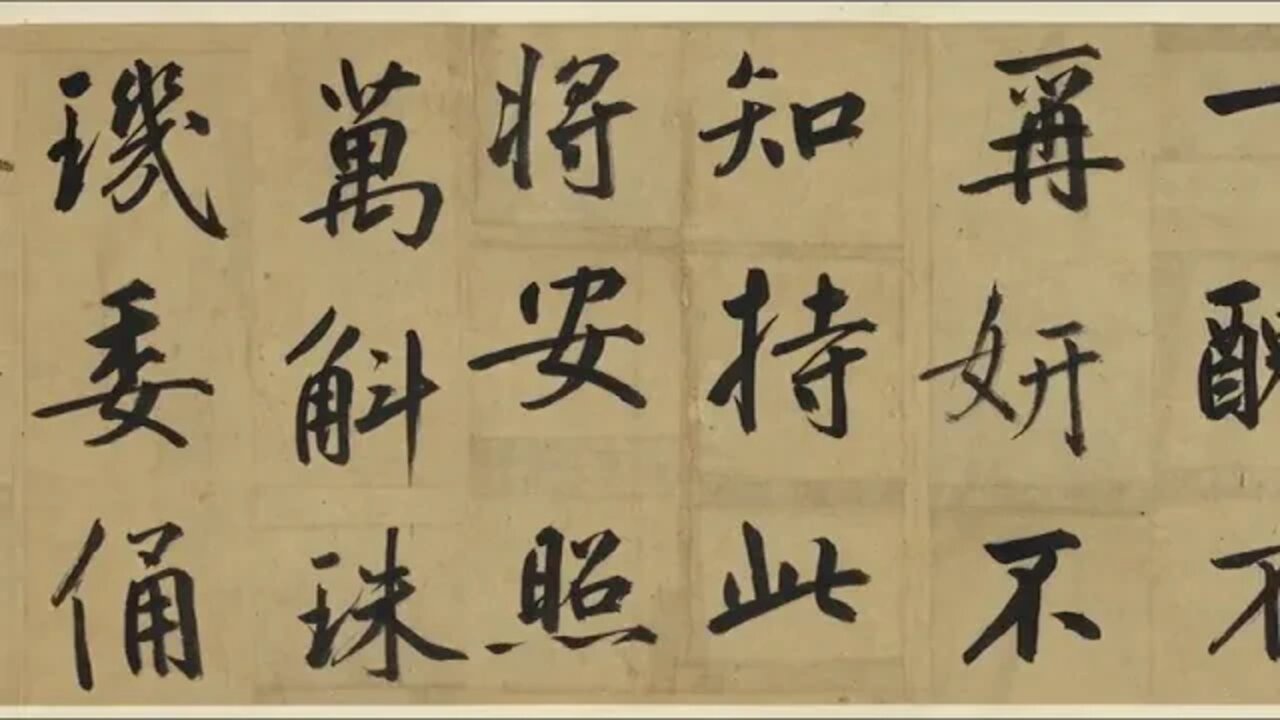 一醜不
再妍不
知持此
將安照
萬斛珠
璣委俑